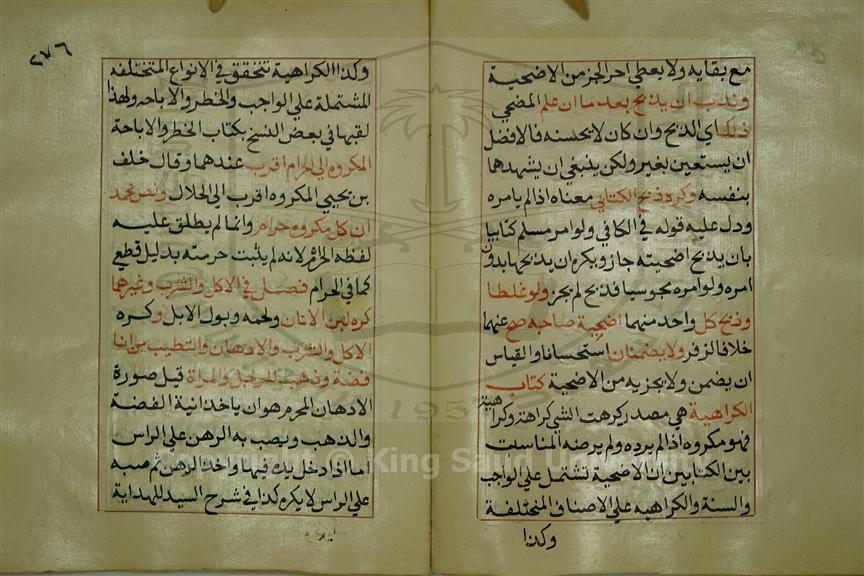 مع بقايه ولا يعطي اجر الجزر من الاضحية
وندب ان يذبح بعد ما ان علم المضحي
ذلك اي الذبح وان كان لا يحسنه فالافضل
ان يستعين بغير ولكن ينبغي ان يشهدها
بنفسه وكره ذبح الكتابي معناه اذا لم يامره
ودل عليه قوله في الكافي ولو امر مسلم كتابيا
بان يذبح اضحيته جاز ويكره ان يذبحها بدون
امره ولو امره مجوسيا فذبح لم يجز ولو غلطا
وذبح كل واحد منهما اضحية صاحبه صح عنهما
خلافا لزفر ولا يضمنان استحسانا والقياس
ان يضمن ولا يجزيه من الاضحية كتاب
الكراهية هي مصدر كرهت الشي كراهة وكراهية
فهو مكروه اذا لم يرده ولم يرضه المناسبت
بين الكتابين ان الاضحية تشتمل علي الواجب
والسنة والكراهيه علي الاصناف المختلفة
وكذا
٢٧٦
وكذا الكراهية تتحقق في الانواع المختلفه
المشتملة علي الواجب والخطر والاباحه ولهذا
لقبها في بعض النسخ بكتاب الخطر والاباحة
المكروه الي الحرام اقرب عندهما وقال خلف
بن يحيي المكروه اقرب الي الحلال ونص محمد
ان كل مكروه حرام وانما لم يطلق عليه
لفظه الحرام لانه لم يثبت حرمته بدليل قطعي
كما في الحرام فصل في الاكل والشرب وغيرهما
كره لبن الاتان ولحمه وبول الابل وكره
الاكل والشرب والادهان والتطيب من انا
فضة وذهب للرجل والمراة قيل صورة
الادهان المحرم هو ان ياخذ انية الفضة
والذهب ويصب به الدهن علي الراس
اما اذا دخل يده فيها واخذ الدهن ثم صبه
علي الراس لا يكره كذا في شرح السيد للهداية
Copyright © King Saud University
1957